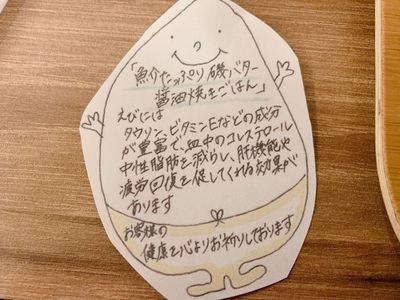 「魚介たっぷり磯バター
醤油焼きごはん」
えびには
タウリン、ビタミンEなどの成分
が豊富で、血中のコレステロール
中性脂肪を減らし、肝機能や
疲労回復を促してくれる効果が
あります
お客様の
健康を心よりお祈りしております